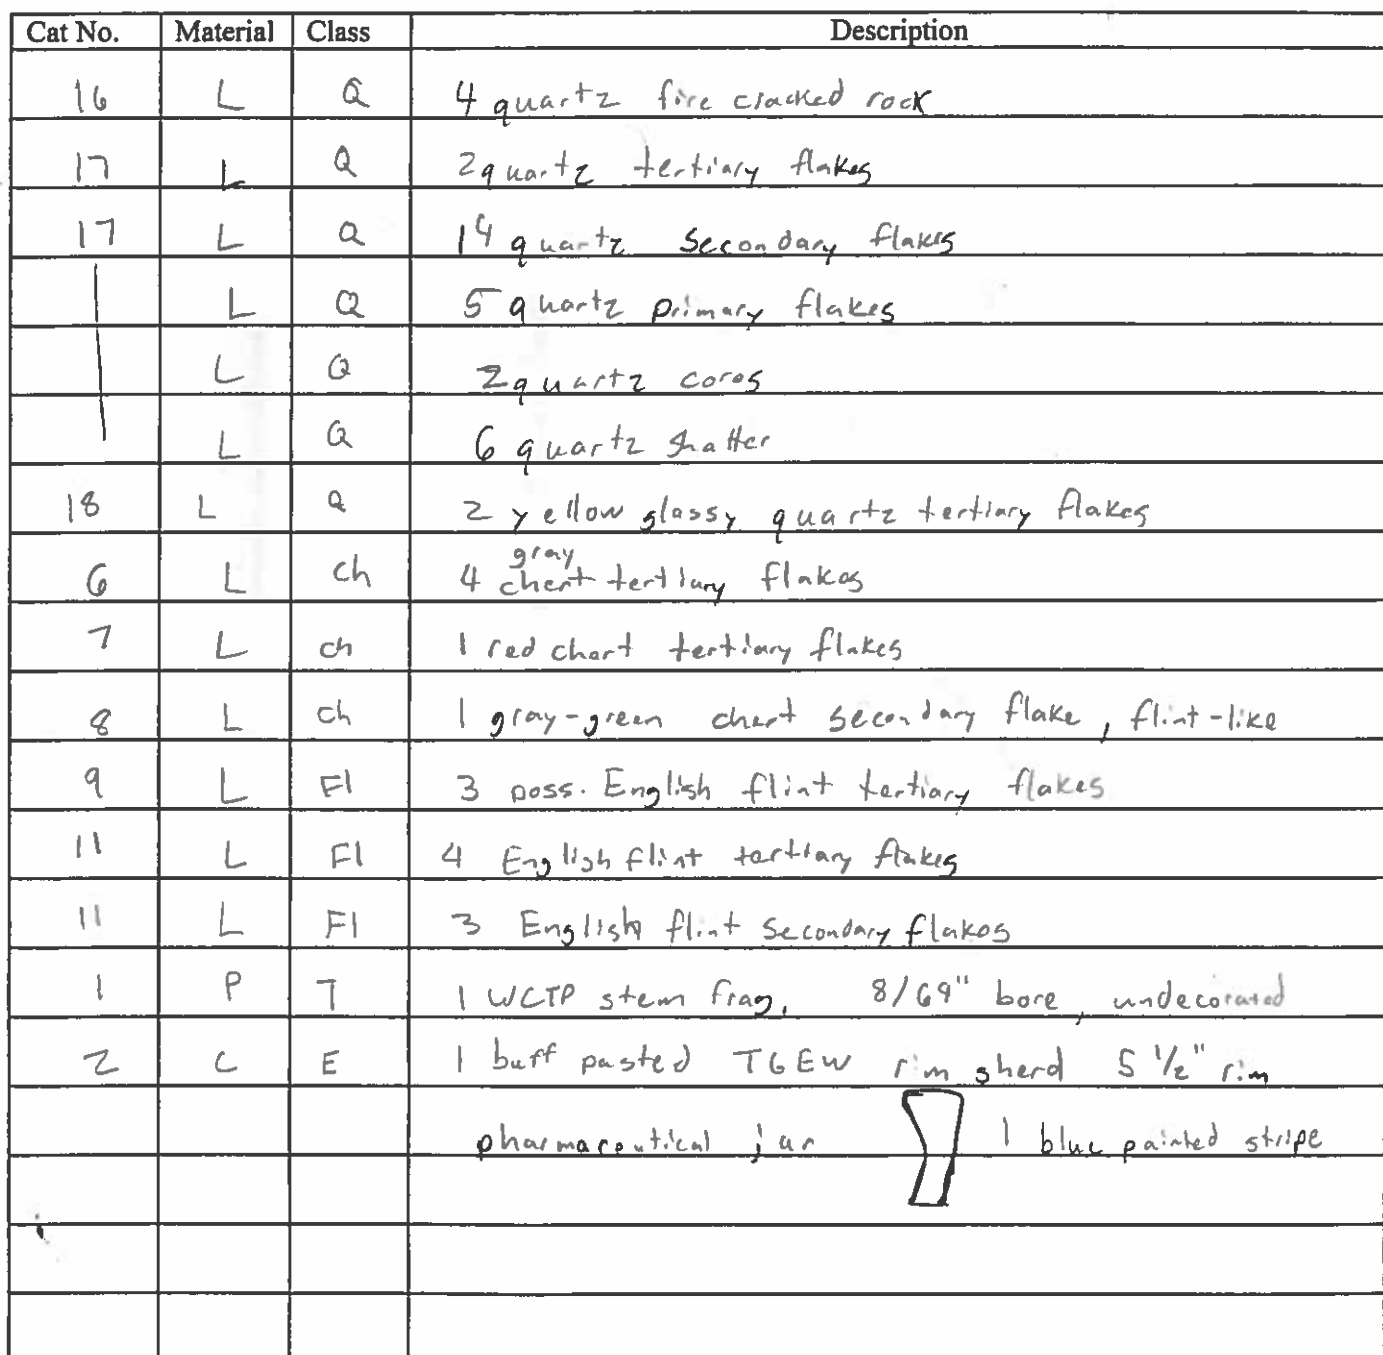 Cat No. Material Class Description
16 L Q 4 quartz fire cracked rock
17 L Q 2 quartz tertiary flakes
17 L Q 14 quartz secondary flakes
L Q 5 quartz primary flakes
L Q 2 quartz cores
L Q 6 quartz shatter
18 L Q 2 yellow glassy quartz tertiary flakes
gray
6 L ch 4 chert tertiary flakes
7 L ch 1 red chert tertiary flakes
8 L ch 1 gray-green chert secondary flake, flint-like
9 L Fl 3 poss. English flint tertiary flakes
11 L Fl 4 English flint tertiary flakes
11 L Fl 3 English flint secondary flakes
1 P T 1 WCTP stem frag, 8/69" bore, undecorated
2 C E 1 buff pasted TGEW rim sherd 5 1/2" rim
pharmaceutical jar 1 blue painted stripe